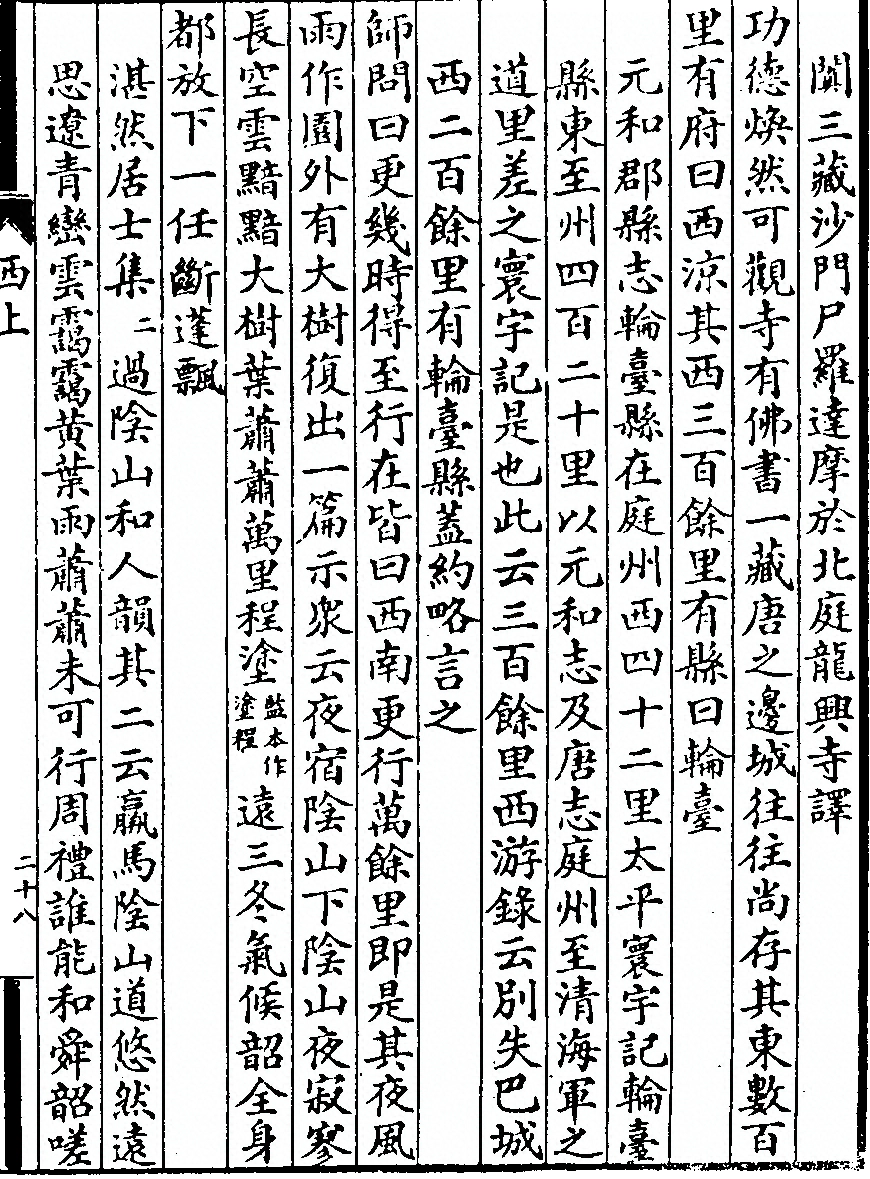 闐三藏沙門尸羅達摩於北庭龍興寺譯
功德煥然可觀寺有佛書一藏唐之邊城往往尚存其東數百
里有府曰西涼其西三百餘里有縣曰輪臺
元和郡縣志輪臺縣在庭州西四十二里太平寰宇記輪臺
縣東至州四百二十里以元和志及唐志庭州至清海軍之
道里差之寰宇記是也此云三百餘里西游錄云別失巴城
西二百餘里有輪臺縣蓋約略言之
師問曰更幾時得至行在皆曰西南更行萬餘里即是其夜風
雨作園外有大樹復出一篇示眾云夜宿陰山下陰山夜寂寥
長空雲黯黯大樹葉蕭蕭萬里程塗監本作塗程遠三冬氣候韶全身
都放下一任斷蓬飄
湛然居士集二過陰山和人韻其二云羸馬陰山道悠然遠
思遼青巒雲靄靄黃葉雨蕭蕭未可行周禮誰能和舜韶嗟
西上
二十八